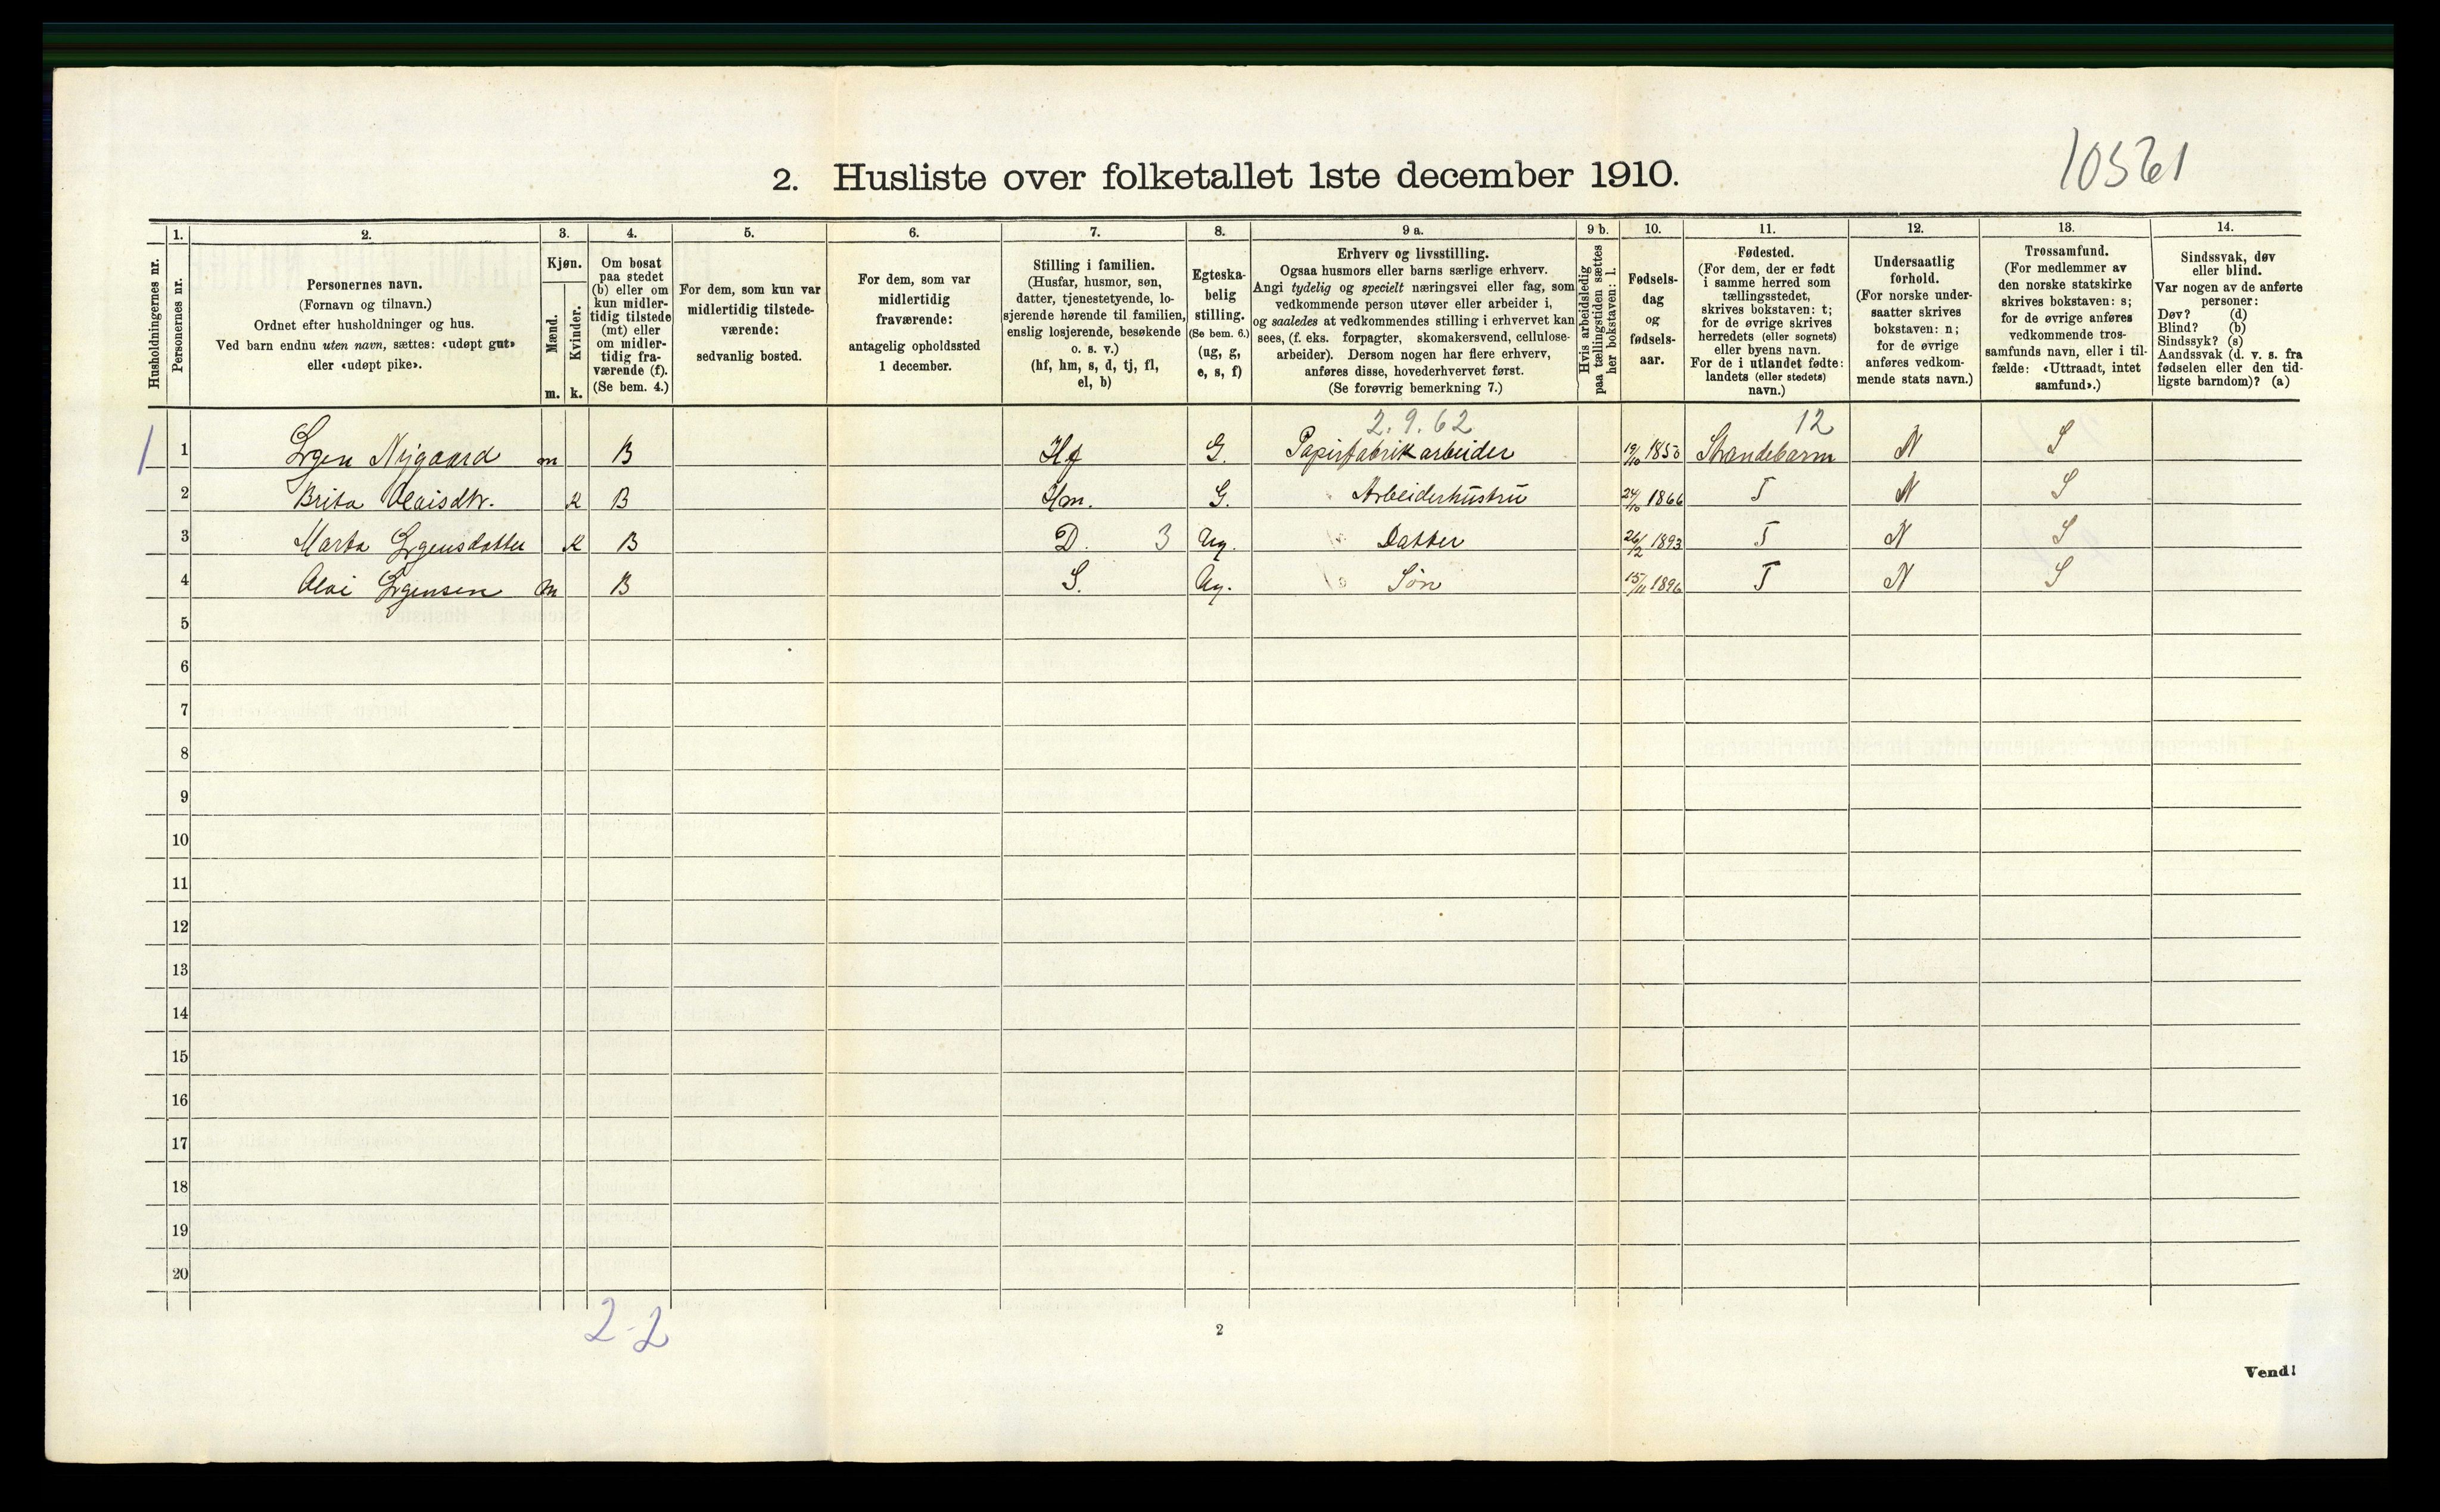 10561
2. Husliste over folketallet 1ste december 1910.
1. 2. 3. 4. 5. 6. 7. 8. 9 a. 9 b. 10. 11. 12. 13. 14.
Husholdningernes nr.
Personernes nr.
Personernes navn.
(Fornavn og tilnavn.)
Ordnet efter husholdninger og hus.
Ved barn endnu uten navn, sættes: «udøpt gut»
eller «udøpt pike».
Kjøn.
Mænd.
Kvinder.
m. k.
Om bosat
paa stedet
(b) eller om
kun midler-
tidig tilstede
(mt) eller
om midler-
tidig fra-
værende (f).
(Se bem. 4.)
For dem, som kun var
midlertidig tilstede-
værende:
sedvanlig bosted.
For dem, som var
midlertidig
fraværende:
antagelig opholdssted
1 december.
Stilling i familien.
(Husfar, husmor, søn,
datter, tjenestetyende, lo-
sjerende hørende til familien,
enslig losjerende, besøkende
o. s. v.)
(hf, hm, s, d, tj, fl,
el, b)
Egteska-
belig
stilling.
(Se bem. 6.)
(ug, g,
e, s, f)
Erhverv og livsstilling.
Ogsaa husmors eller barns særlige erhverv.
Angi tydelig og specielt næringsvei eller fag, som
vedkommende person utøver eller arbeider i,
og saaledes at vedkommendes stilling i erhvervet kan
sees, (f. eks. forpagter, skomakersvend, cellulose-
arbeider). Dersom nogen har flere erhverv,
anføres disse, hovederhvervet først.
(Se forøvrig bemerkning 7.)
Hvis arbeidsledig
paa tællingstiden sættes
her bokstaven: l.
Fødsels-
dag
og
fødsels-
aar.
Fødested.
(For dem, der er født
i samme herred som
tællingsstedet,
skrives bokstaven: t;
for de øvrige skrives
herredets (eller sognets)
eller byens navn.
For de i utlandet fødte:
landets (eller stedets)
navn.)
Undersaatlig
forhold.
(For norske under-
saatter skrives
bokstaven: n;
for de øvrige
anføres vedkom-
mende stats navn.)
Trossamfund.
(For medlemmer av
den norske statskirke
skrives bokstaven: s;
for de øvrige anføres
vedkommende tros-
samfunds navn, eller i til-
fælde: «Uttraadt, intet
samfund».)
Sindssvak, døv
eller blind.
Var nogen av de anførte
personer:
Døv? (d)
Blind? (b)
Sindssyk? (s)
Aandssvak (d. v. s. fra
fødselen eller den tid-
ligste barndom)? (a)
2.9.62 12
1 1 Nygaard m B Hf G. Papirfabrikarbeider Strandebarm N S
2 Brita Olaisdtr. K B Hm. G. Arbeiderhustru 24/10 1866 T N S
3 Marta K B D. 3 Ug. Datter 26/2 1893 T N S
4 Olai m B S. Ug. Søn 15/11 1896 T N S
5
6
7
8
9
10
11
12
13
14
15
16
17
18
19
20
2-2
2
Vend!